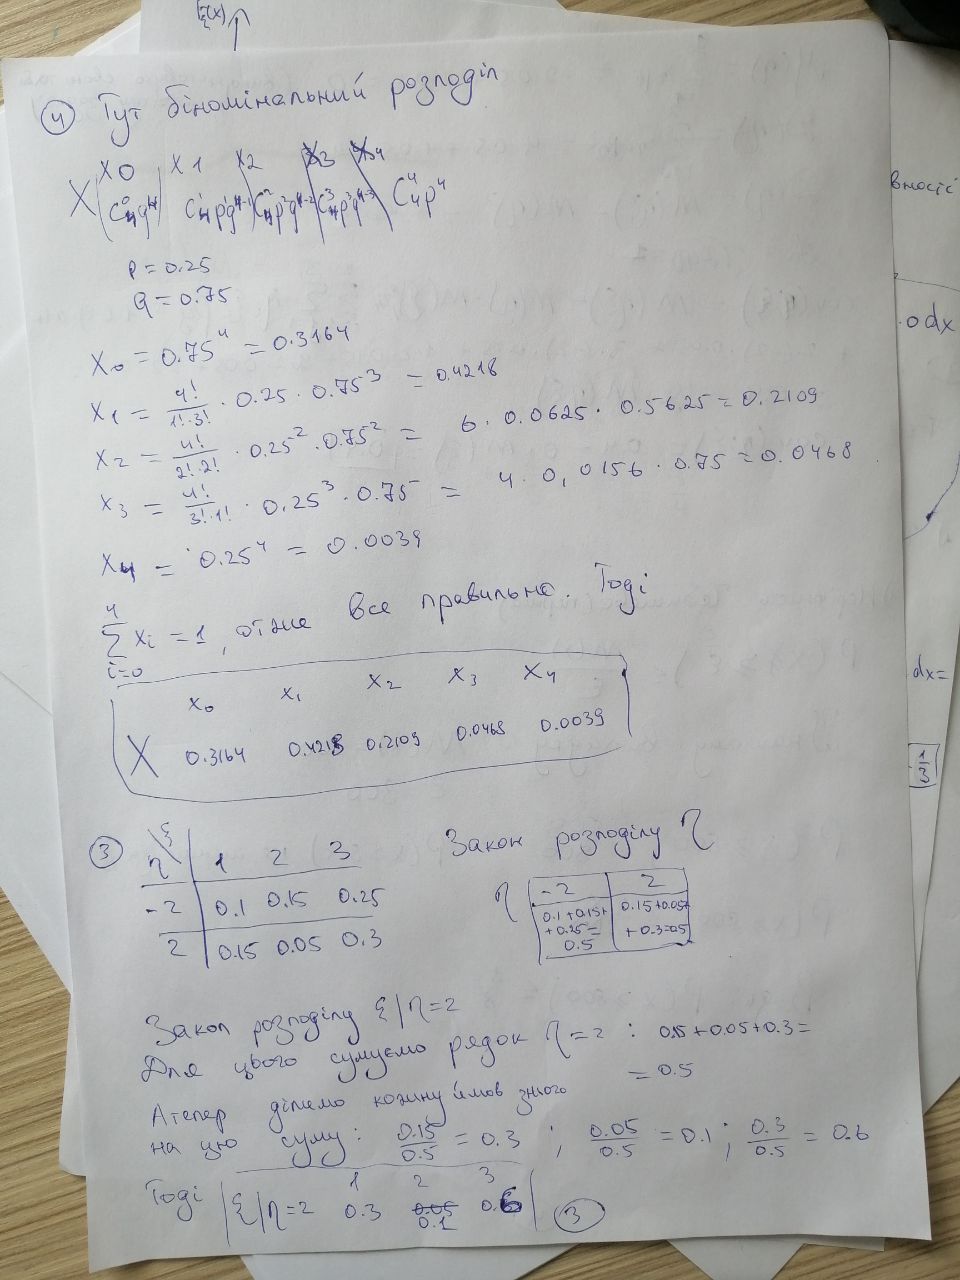 ξ(x)
④ Тут біноміальний розподіл
X0 X1 X2 X3 X4
X C⁰₄q⁴ C¹₄pq⁴⁻¹ C²₄p²q⁴⁻² C³₄p³q⁴⁻³ C⁴₄p⁴
p=0.25
q=0.75
X₀ = 0.75⁴ = 0.3164
X₁ = 4!/(1!·3!) · 0.25 · 0.75³ = 0.4218
X₂ = 4!/(2!·2!) · 0.25² · 0.75² = 6 · 0.0625 · 0.5625 = 0.2109
X₃ = 4!/(3!·1!) · 0.25³ · 0.75 = 4 · 0,0156 · 0.75 = 0.0468
X₄ = 0.25⁴ = 0.0039
∑ᵢ₌₀⁴ xᵢ = 1, отже все правильно. Тоді
X₀ X₁ X₂ X₃ X₄
X 0.3164 0.4218 0.2109 0.0468 0.0039
③ η\ξ 1 2 3
-2 0.1 0.15 0.25
2 0.15 0.05 0.3
Закон розподілу η
η -2 2
0.1+0.15+ 0.15+0.05+
+0.25= +0.3=0.5
0.5
Закон розподілу ξ/η=2
Для цього сумуємо рядок η=2 : 0.15+0.05+0.3=
=0.5
А тепер ділимо кожну ймов з нього
на цю суму: 0.15/0.5 = 0.3 ; 0.05/0.5 = 0.1 ; 0.3/0.5 = 0.6
1 2 3
Тоді ξ/η=2 0.3 0.05 0.6 ③
0.1
вність
.0dx
dx=
1/3